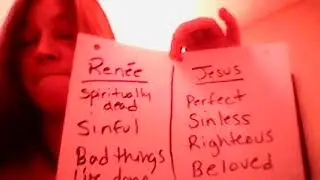 Renée
Spiritually
dead
Sinful
Bad things
Jesus
Perfect
Sinless
Righteous
Beloved